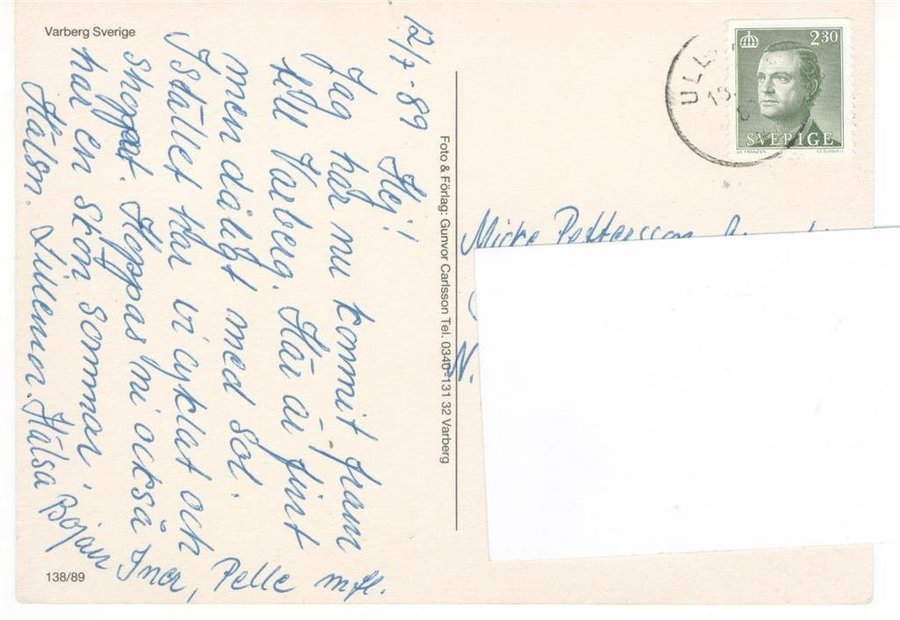 Varberg Sverige
12/7-89 Hej!
Jag har nu kommit fram
till Varberg. Här är fint
men dåligt med sol.
Istället har vi cyklat och
shoppat. Hoppas ni också
har en skön sommar.
Hälsn. Linnea. Hälsa
Iner, Pelle mfl.
138/89
Foto & Förlag: Gunvor Carlsson Tel. 0340-131 32 Varberg
2.30
SVERIGE
ULL
Micke Pettersson
N.